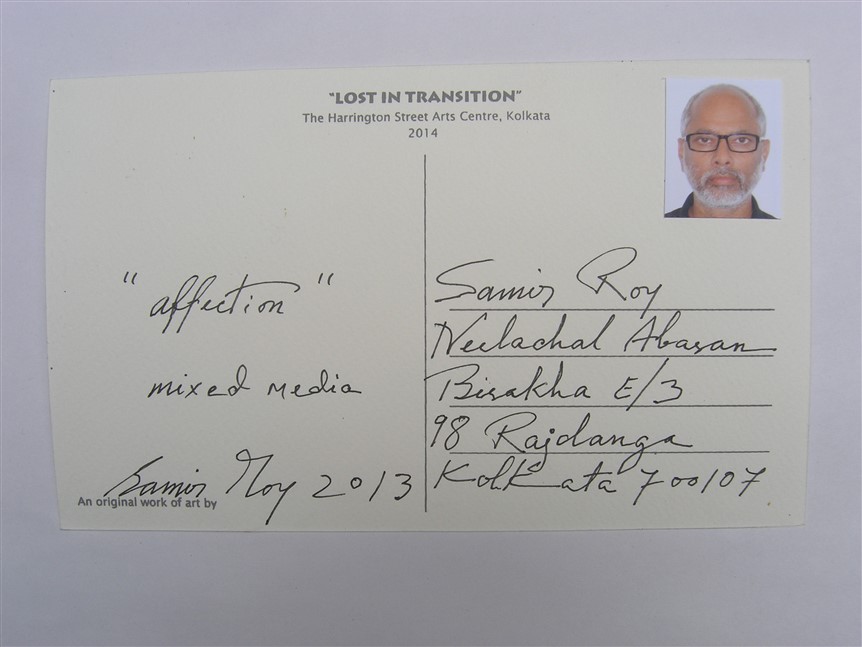 "LOST IN TRANSITION"
The Harrington Street Arts Centre, Kolkata
2014
"affection"
mixed media
Samir Roy 2013
An original work of art by
Samir Roy
Neelachal Abasan
Bisakha E/3
98 Rajdanga
Kolkata 700107